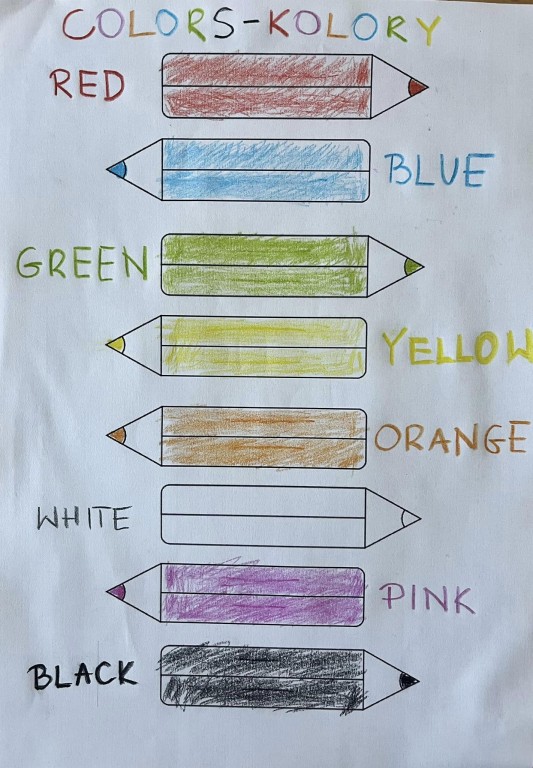 COLORS-KOLORY
RED
BLUE
GREEN
YELLOW
ORANGE
WHITE
PINK
BLACK